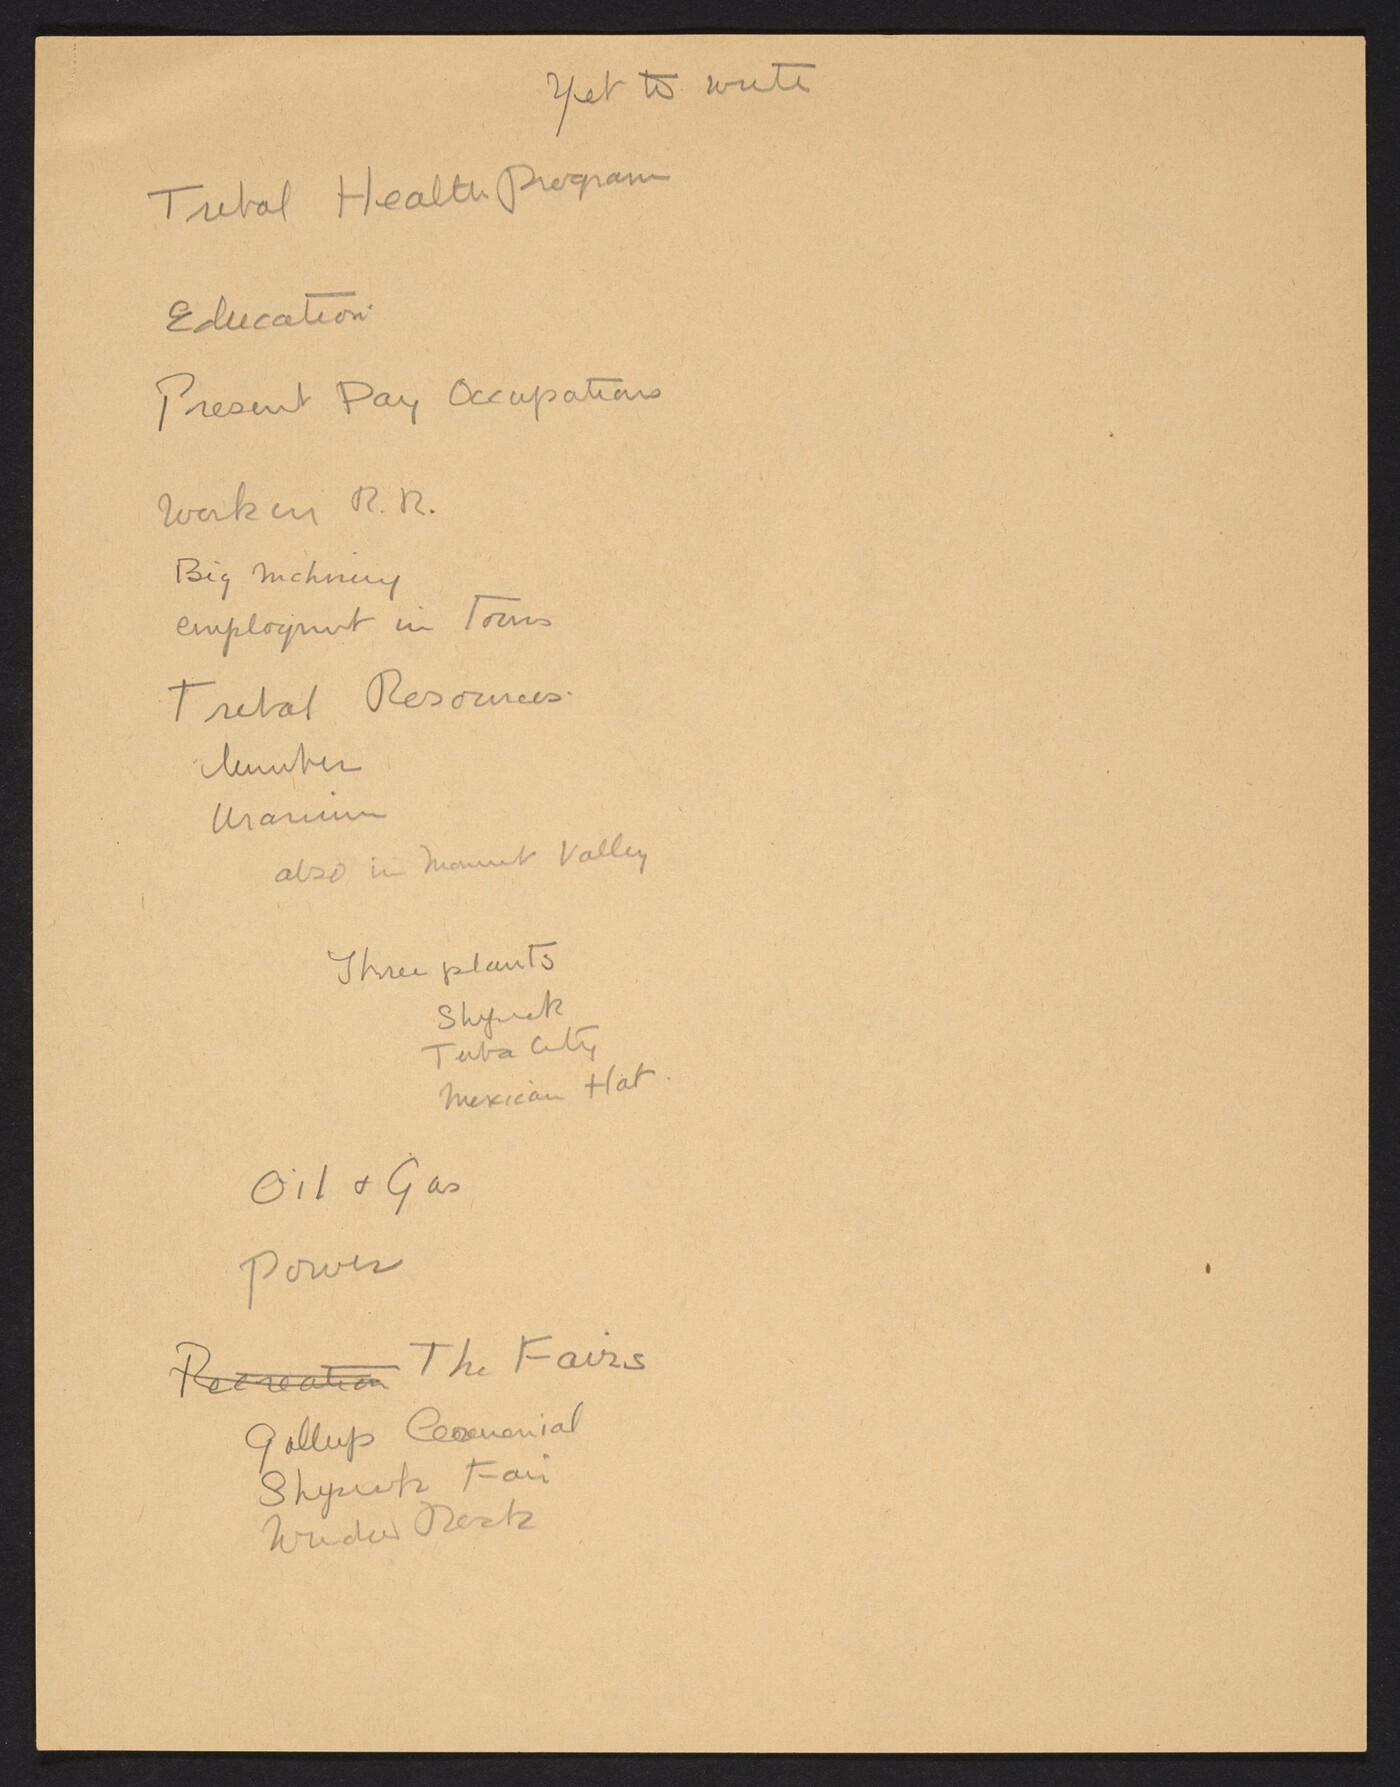 Yet to write
Tribal Health Program
Education
Present Day Occupations
Work on R.R.
Big Mchinery
employmnt in Towns
Tribal Resources
lumber
Uranium
also in Monumt Valley
Three plants
Shiprock
Tuba City
Mexican Hat
Oil & Gas
Power
Recreation The Fairs
Gallup Ceremonial
Shiprock Fair
Window Rock